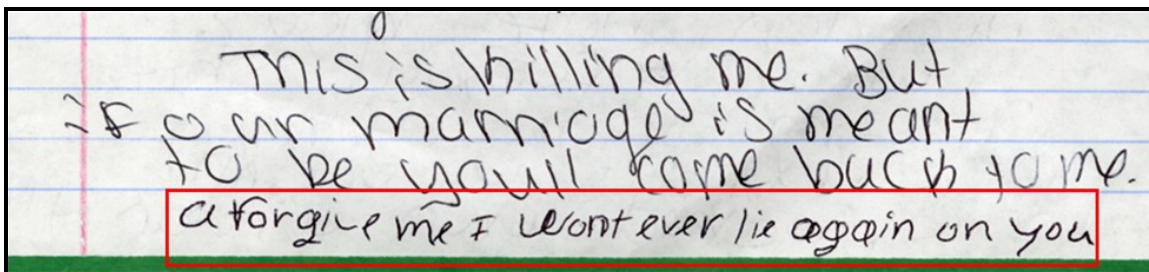 This is killing me. But
if our marriage is meant
to be youll come back to me.
a forgive me I wont ever lie again on you